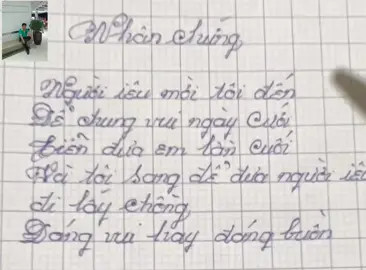 Nhân chứng
Người iêu mời tôi đến
Để chung vui ngày cưới
Tiễn đưa em lần cuối
Và tôi sang để đưa người iêu
đi lấy chồng
Đáng vui hay đáng buồn